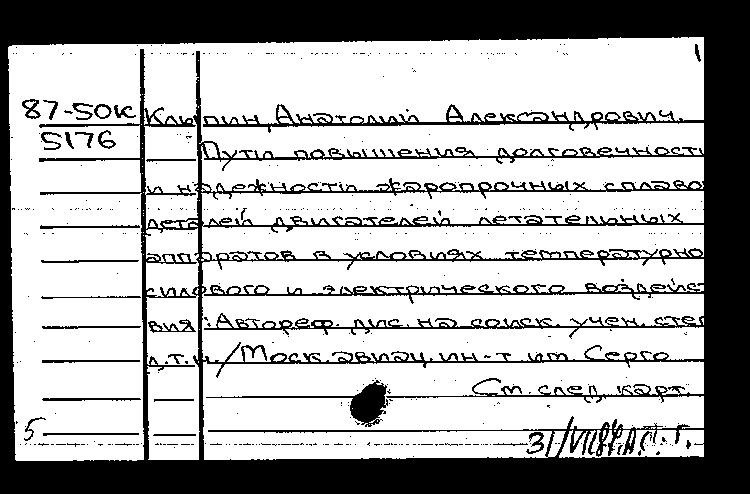 1
87-50к Клыпин, Анатолий Александрович.
5176
Пути повышения долговечности
и надежности жаропрочных сплаво
деталей двигателей летательных
аппаратов в условиях температурно
силового и электрического воздейс
вия : Автореф. дис. на соиск. учен. степ
д.т.н./Моск. авиац. ин-т им. Серго
См. след. карт.
5